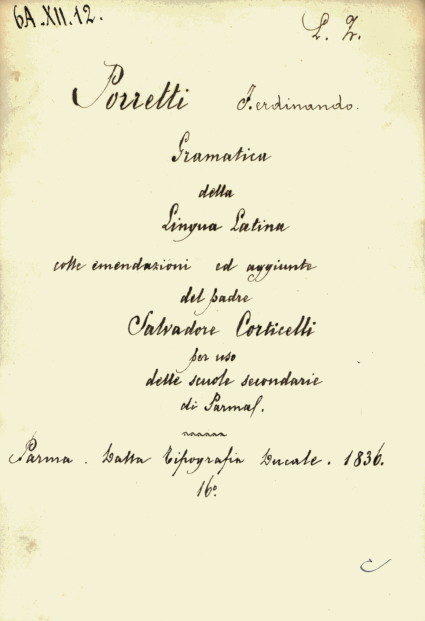 6A.XII.12.
L. Z.
Porretti Ferdinando.
Gramatica
della
Lingua Latina
colle emendazioni ed aggiunte
del padre
Salvadore Corticelli
per uso
delle scuole secondarie
di Parma.
Parma. Dalla Tipografia Ducale. 1836.
16°.